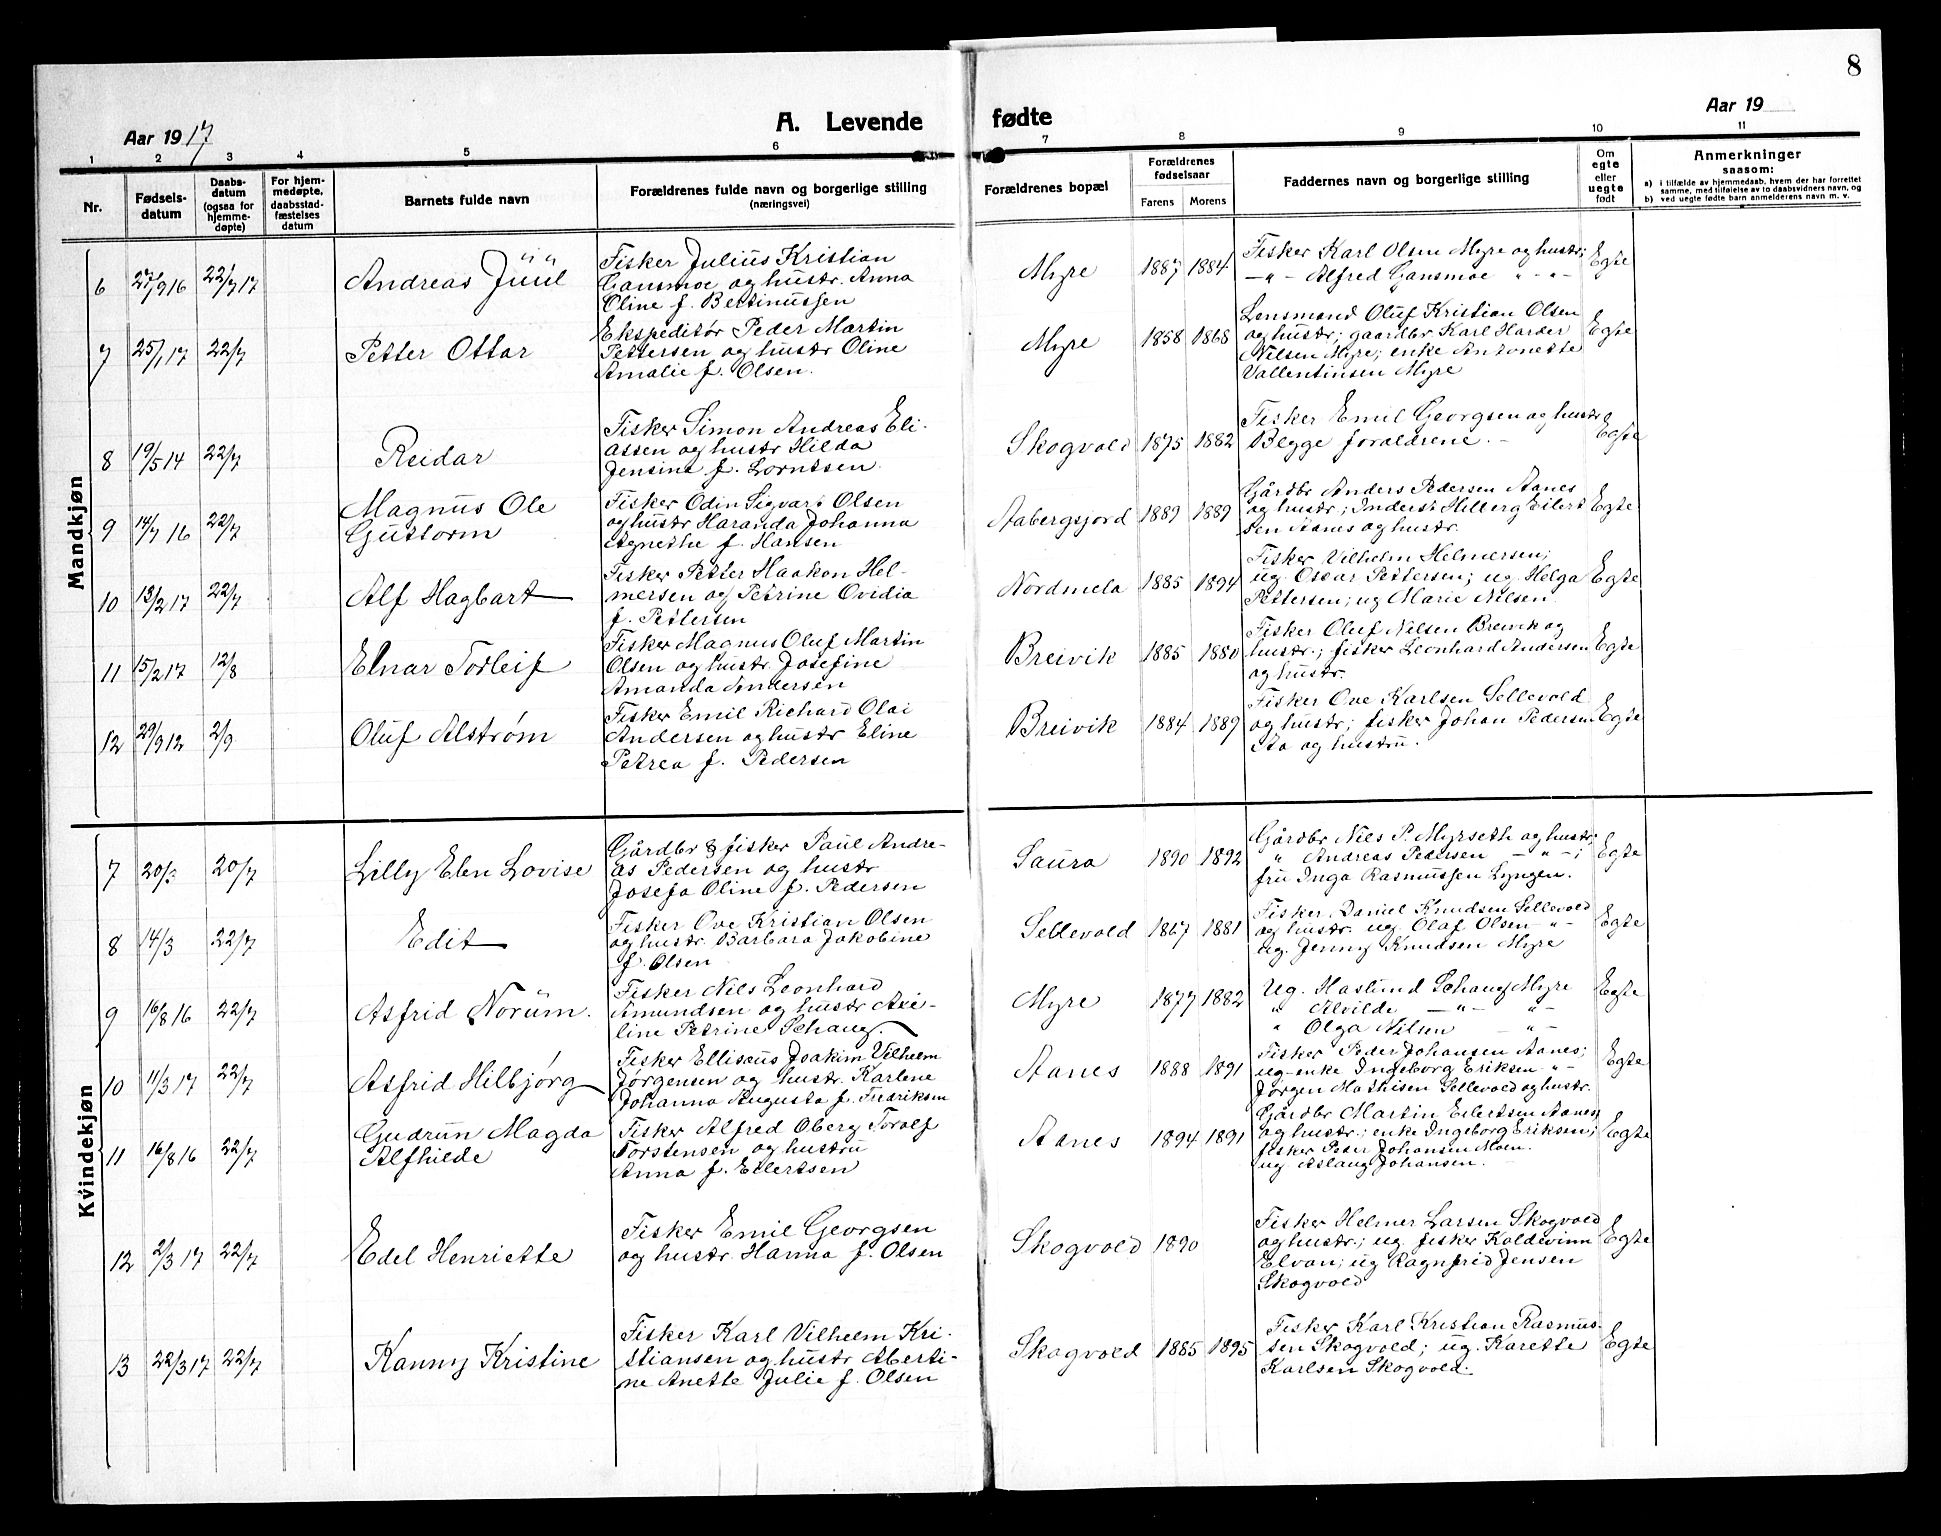 8
Aar 1917
A. Levende fødte
Aar 19
1 2 3 4 5 6 7 8 9 10 11
Nr.
Fødsels-
datum
Daabs-
datum
(ogsaa for
hjemme-
døpte)
For hjem-
medøpte,
daabsstad-
fæstelses
datum
Barnets fulde navn
Forældrenes fulde navn og borgerlige stilling
(næringsvei)
Forældrenes bopæl
Forældrenes
fødselsaar
Farens Morens
Faddernes navn og borgerlige stilling
Om
egte
eller
uegte
født
Anmerkninger
saasom:
a) i tilfælde av hjemmedaab, hvem der har forrettet
samme, med tilføielse av to daabsvidners navn, og
b) ved uegte fødte barn anmelderens navn m. v.
Mandkjøn
6 27/9 16 22/7 17 Andreas Jüül
Fisker Julius Kristian
Gansmoe og hustr. Anna
Oline f. Bertinussen
Myre 1887 1884
Fisker Karl Olsen Myre og hustr;
—"— Alfred Gansmoe " - " -
Egte
7 25/1 17 22/7 Petter Ottar
Ekspeditør Peder Martin
Pettersen og hustr Oline
Amalie f. Olsen.
Myre 1858 1868
Lensmand Oluf Kristian Olsen
og hustr; gaardbr Karl Harder
Nilsen Myre; enke Antonette
Vallentinsen Myre
Egte
8 19/5 14 22/7 Reidar
Fisker Simon Andreas Eli-
assen og hustr Hilda
Jensine f. Lorntsen.
Skogvold 1875 1882
Fisker Emil Georgsen og hustr
Begge forældrene. -
Egte
9 14/7 16 22/7 Magnus Ole
Guttorm
Fisker Odin Sigvart Olsen
og hustr Haranda Johanna
Agnethe f. Hansen
Aabergsjord 1889 1889
Gårdbr Anders Pedersen Aanes
og hustr; Inderst Hilberg Eilert
sen Aanes og hustr.
Egte
10 13/2 17 22/7 Alf Hagbart
Fisker Petter Haakon Hel-
mersen og Petrine Ovidia
f. Pettersen
Nordmela 1885 1894
Fisker Vilhelm Helmersen;
ug. Oscar Pettersen; ug. Helga
Pettersen; ug Marie Nilsen.
Egte
11 15/2 17 12/8 Einar Torleif
Fisker Magnus Oluf Martin
Olsen og hustr. Josefine
Amanda Andersen
Breivik 1885 1880
Fisker Oluf Nilsen Breivik og
hustr.; fisker Leonhard Andersen
og hustr.
Egte
12 29/9 12 2/9 Oluf Alstrøm
Fisker Emil Richard Olai
Andersen og hustr Eline
Petrea f. Pedersen
Breivik 1884 1889
Fisker Ove Karlsen Sellevold
og hustr; fisker Johan Pedersen
Aa og hustru.
Egte
Kvindekjøn
7 20/3 20/7 Lilly Elen Lovise
Gårdbr & fisker Paul Andre-
as Pedersen og hustr
Josefa Oline f. Pedersen
Saura 1890 1892
Gårdbr Nils P. Myrseth og hustr;
" Andreas Pedersen — " —;
fru Inga Rasmussen Lyngen.
Egte
8 14/3 22/7 Edit
Fisker Ove Kristian Olsen
og hustr. Barbara Jakobine
f. Olsen
Sellevold 1867 1881
Fisker Daniel Knudsen Sellevold
og hustr. ug. Olaf Olsen " -
ug. Jenny Knudsen Myre
Egte
9 16/8 16 22/7 Asfrid Norüm.
Fisker Nils Leonhard
Amundsen og hustr Axe-
line Petrine Schaug.
Myre 1877 1882
Ug. Haslund Schaug Myre
" Alvilde — " — " —
" Olga Nilsen — " —
Egte
10 11/3 17 22/7 Asfrid Hilbjørg
Fisker Ellisæus Joakim Vilhelm
Jørgensen og hustr. Karlene
Johanna Augusta f. Fredriksen
Aanes 1888 1891
Fisker Peder Johansen Aanes;
ug-enke Ingeborg Eriksen " -
Jørgen Mathisen Sellevold og hustr.
Egte
11 16/8 16 22/7 Gudrun Magda
Alfhilde
Fisker Alfred Oberg Toralf
Torstensen og hustru
Anna f. Eilertsen
Aanes 1894 1891
Gårdbr Martin Eilertsen Aanes
og hustr.; enke Ingeborg Eriksen;
fisker Peter Johansen Moen.
ug Aslaug Johansen.
Egte
12 2/3 17 22/7 Edel Henriette
Fisker Emil Georgsen
og hustr. Hanna f. Olsen
Skogvold 1890
Fisker Helmer Larsen Skogvold
og hustr.; ug. fisker Koldevinn
Elvan; ug Ragnfrid Jensen
Skogvold
Egte
13 22/3 17 22/7 Kanny Kristine
Fisker Karl Vilhelm Kri-
stiansen og hustr Aberti-
ne Anette Julie f. Olsen
Skogvold 1885 1895
Fisker Karl Kristian Rasmus-
sen Skogvold; ug. Karette
Karlsen Skogvold.
Egte